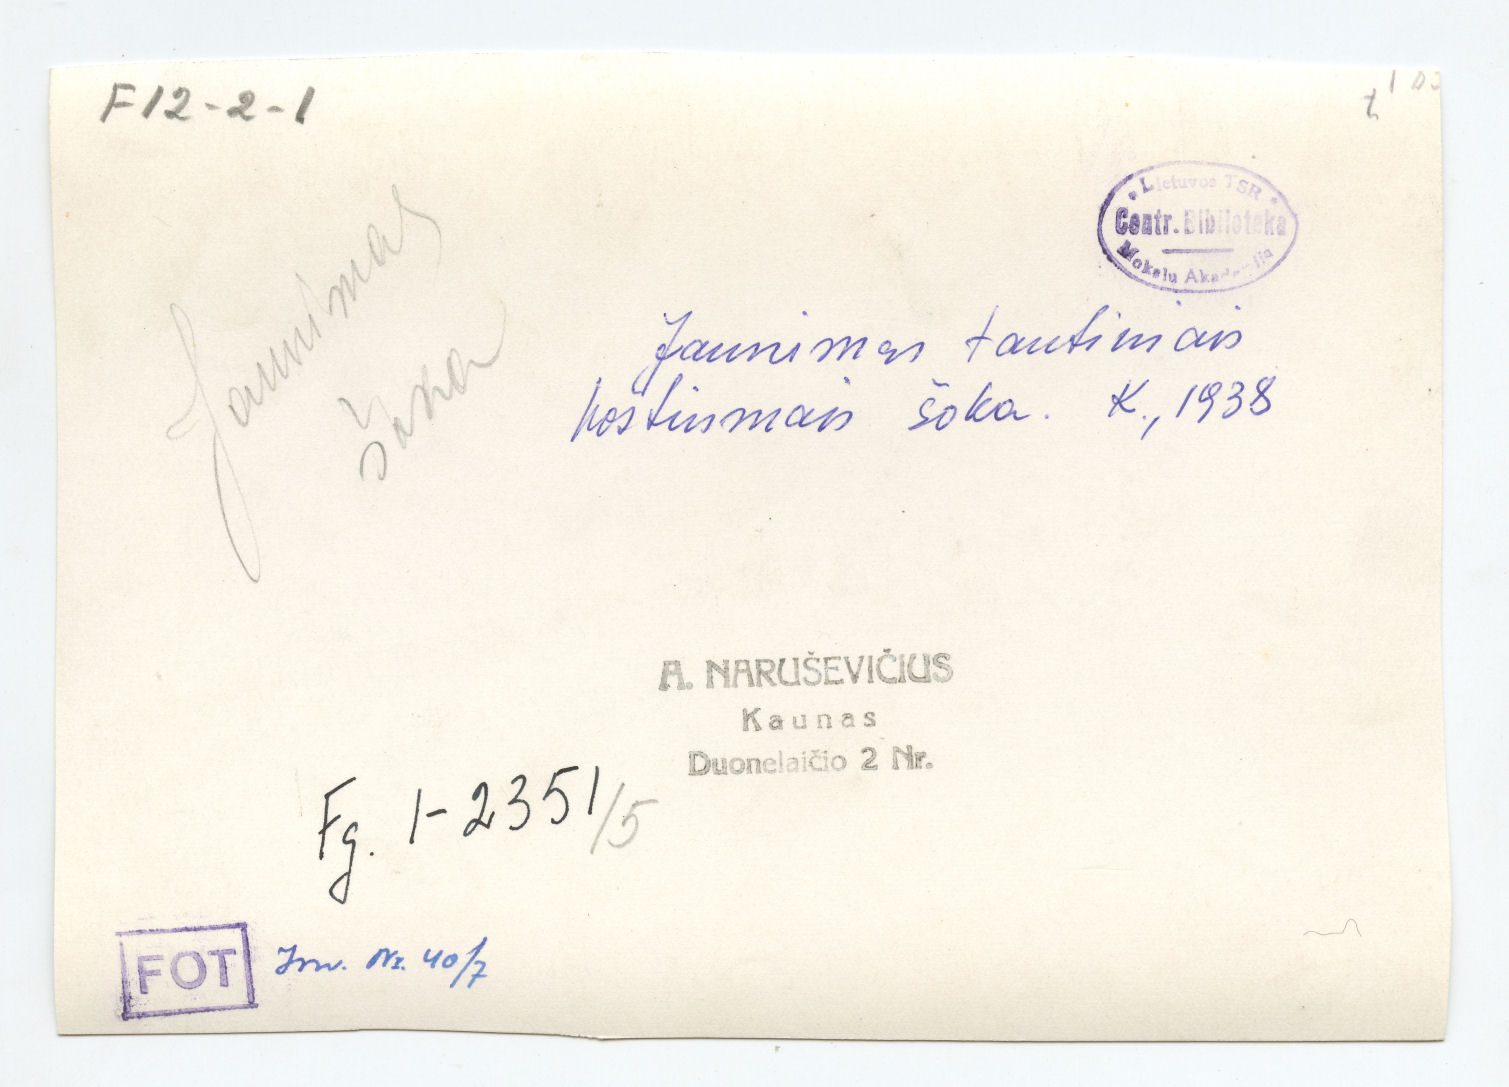 F12-2-1
Lietuvos TSR
Centr. Biblioteka
Mokslų Akademija
Jaunimas
šoka
Jaunimas tautiniais
kostiumais šoka. K., 1938
A. NARUŠEVIČIUS
Kaunas
Duonelaičio 2 Nr.
Fg. 1-2351/5
FOT
Inv. Nr. 40/7